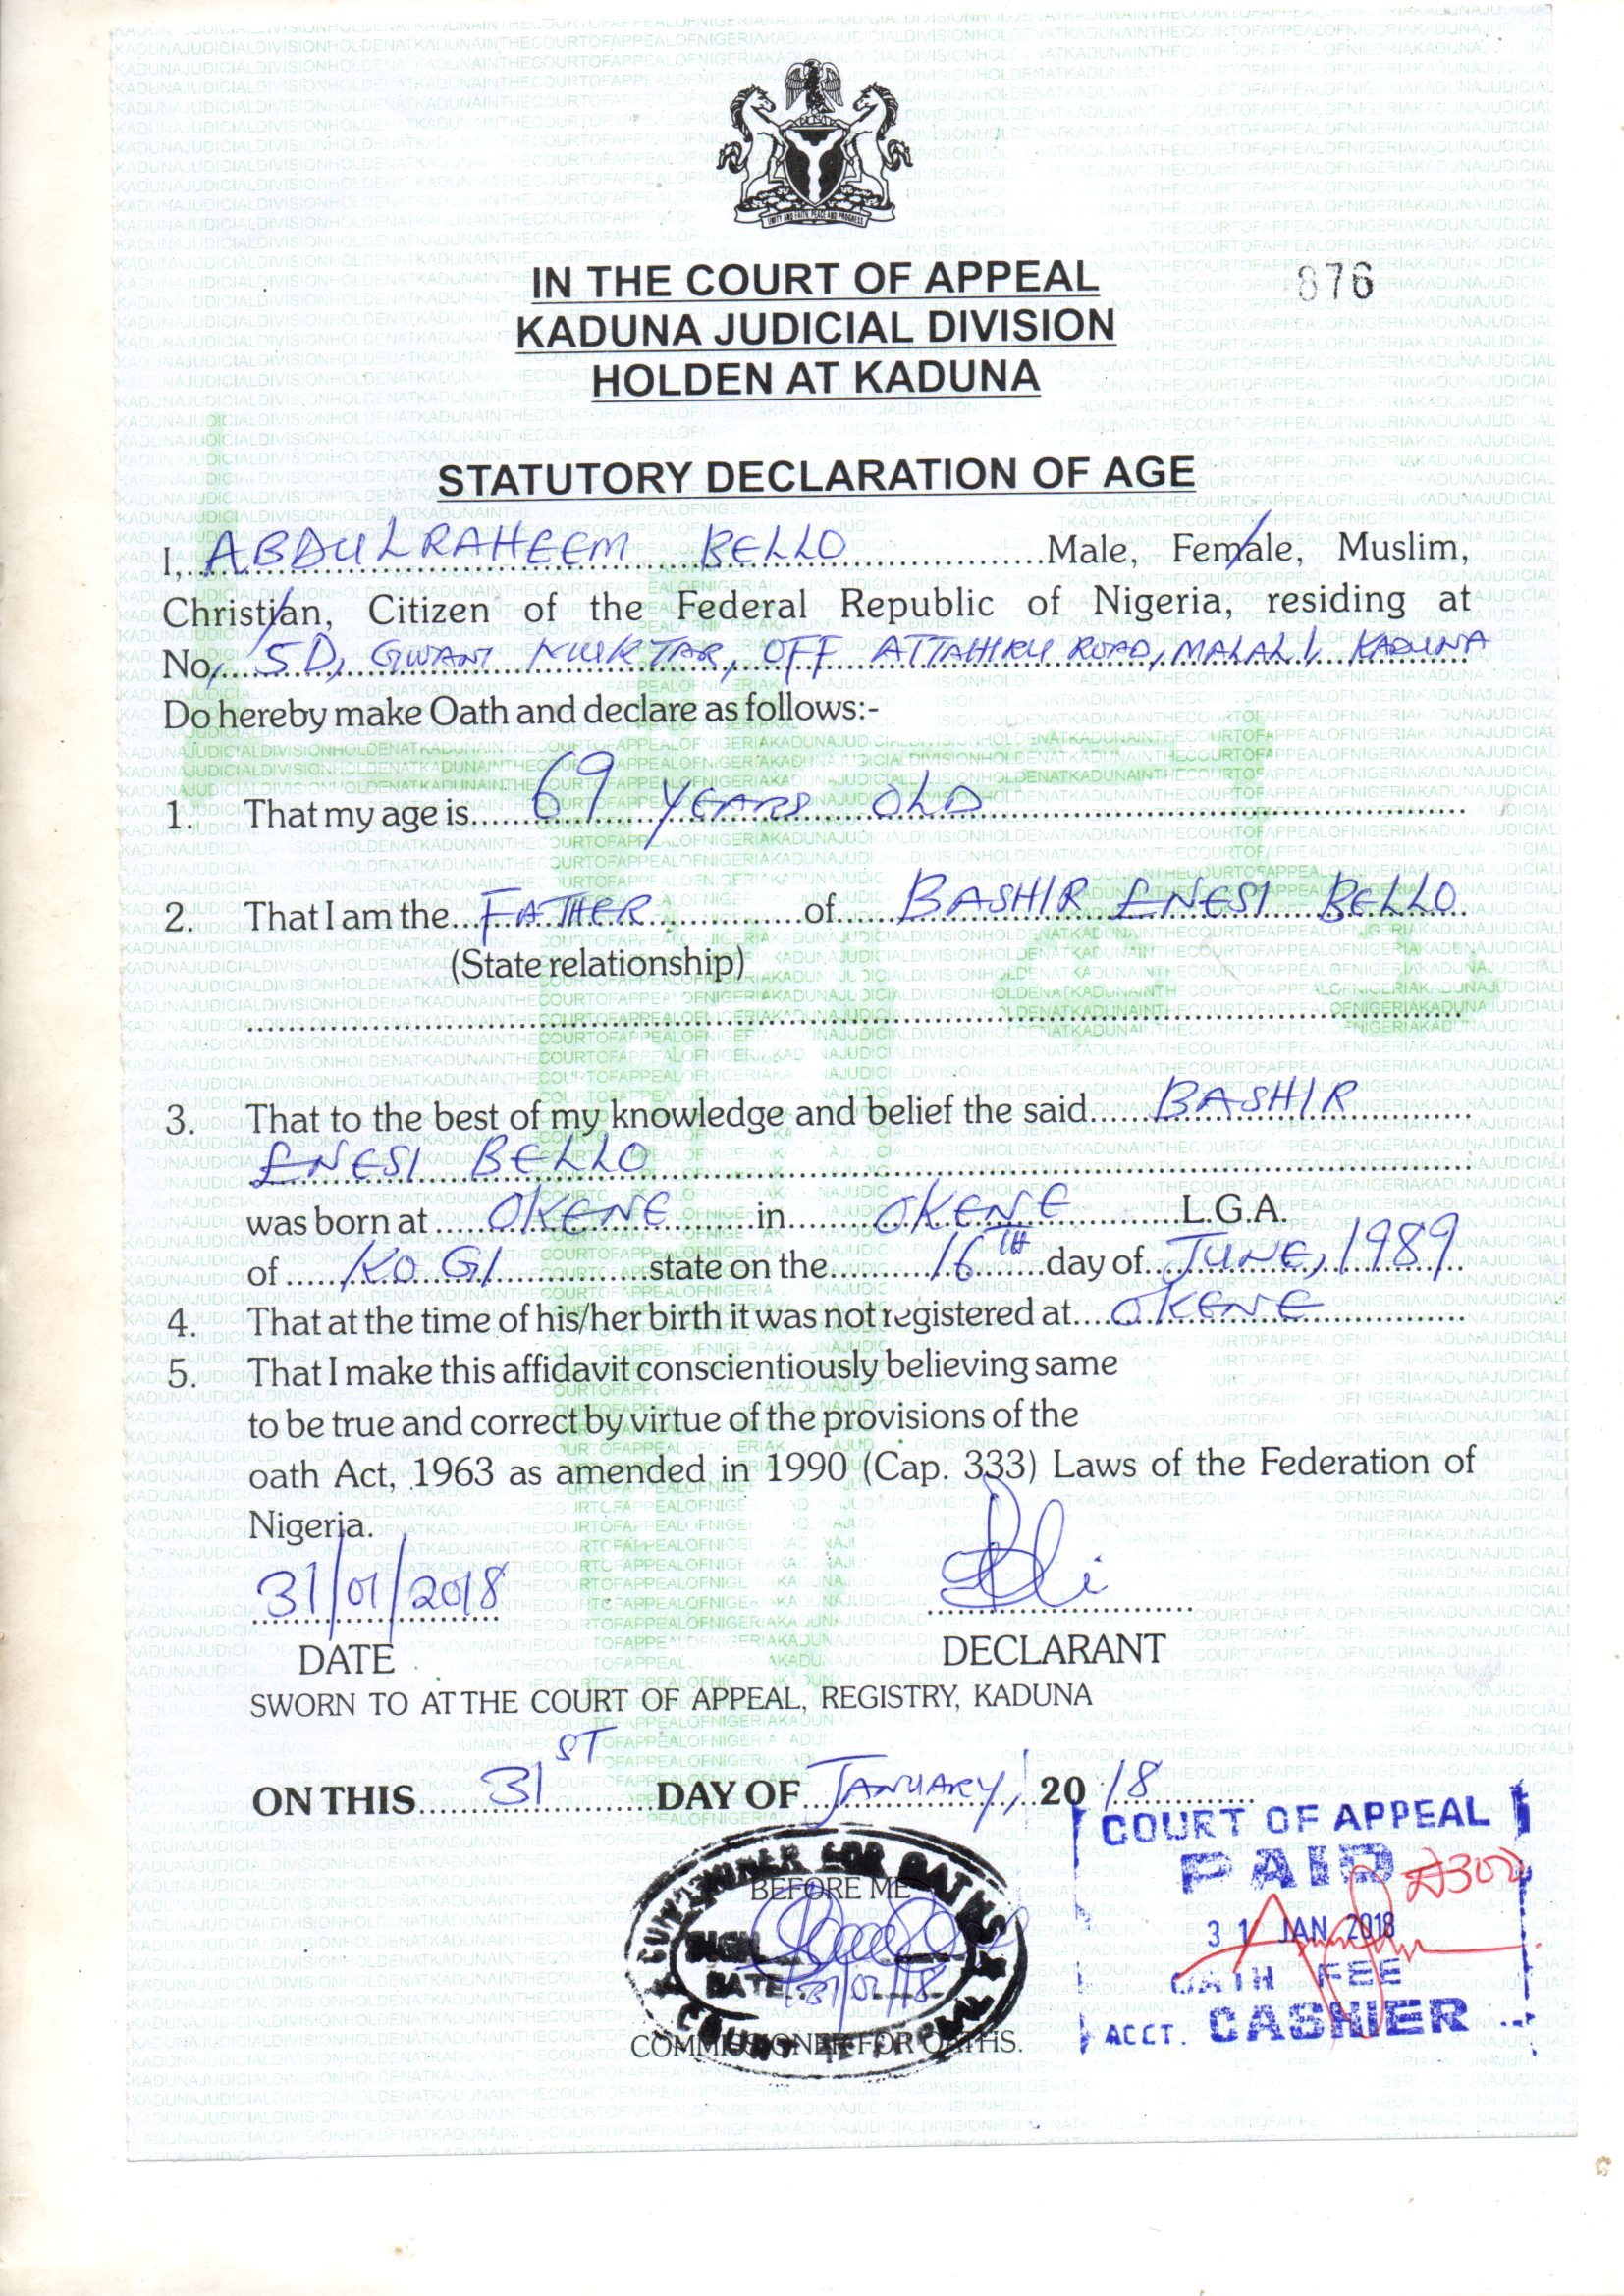 UNITY AND FAITH, PEACE AND PROGRESS
IN THE COURT OF APPEAL
876
KADUNA JUDICIAL DIVISION
HOLDEN AT KADUNA
STATUTORY DECLARATION OF AGE
I, ABDULRAHEEM BELLO Male, Female, Muslim,
Christian, Citizen of the Federal Republic of Nigeria, residing at
No, 5D, GWANI MUKTAR, OFF ATTAHIRU ROAD, MALALI, KADUNA
Do hereby make Oath and declare as follows:-
1. That my age is 69 YEARS OLD
2. That I am the FATHER of BASHIR ENESI BELLO
(State relationship)
3. That to the best of my knowledge and belief the said BASHIR
ENESI BELLO
was born at OKENE in OKENE L.G.A.
of KOGI state on the 16TH day of JUNE, 1989
4. That at the time of his/her birth it was not registered at OKENE
5. That I make this affidavit conscientiously believing same
to be true and correct by virtue of the provisions of the
oath Act, 1963 as amended in 1990 (Cap. 333) Laws of the Federation of
Nigeria.
31/01/2018
DATE DECLARANT
SWORN TO AT THE COURT OF APPEAL, REGISTRY, KADUNA
ON THIS 31ST DAY OF JANUARY, 2018
COURT OF APPEAL
PAID ₦300
31 JAN 2018
OATH FEE
ACCT. CASHIER
FOR OATHS
BEFORE ME
SIGN
DATE 31/01/18
COMMISSIONER FOR OATHS.